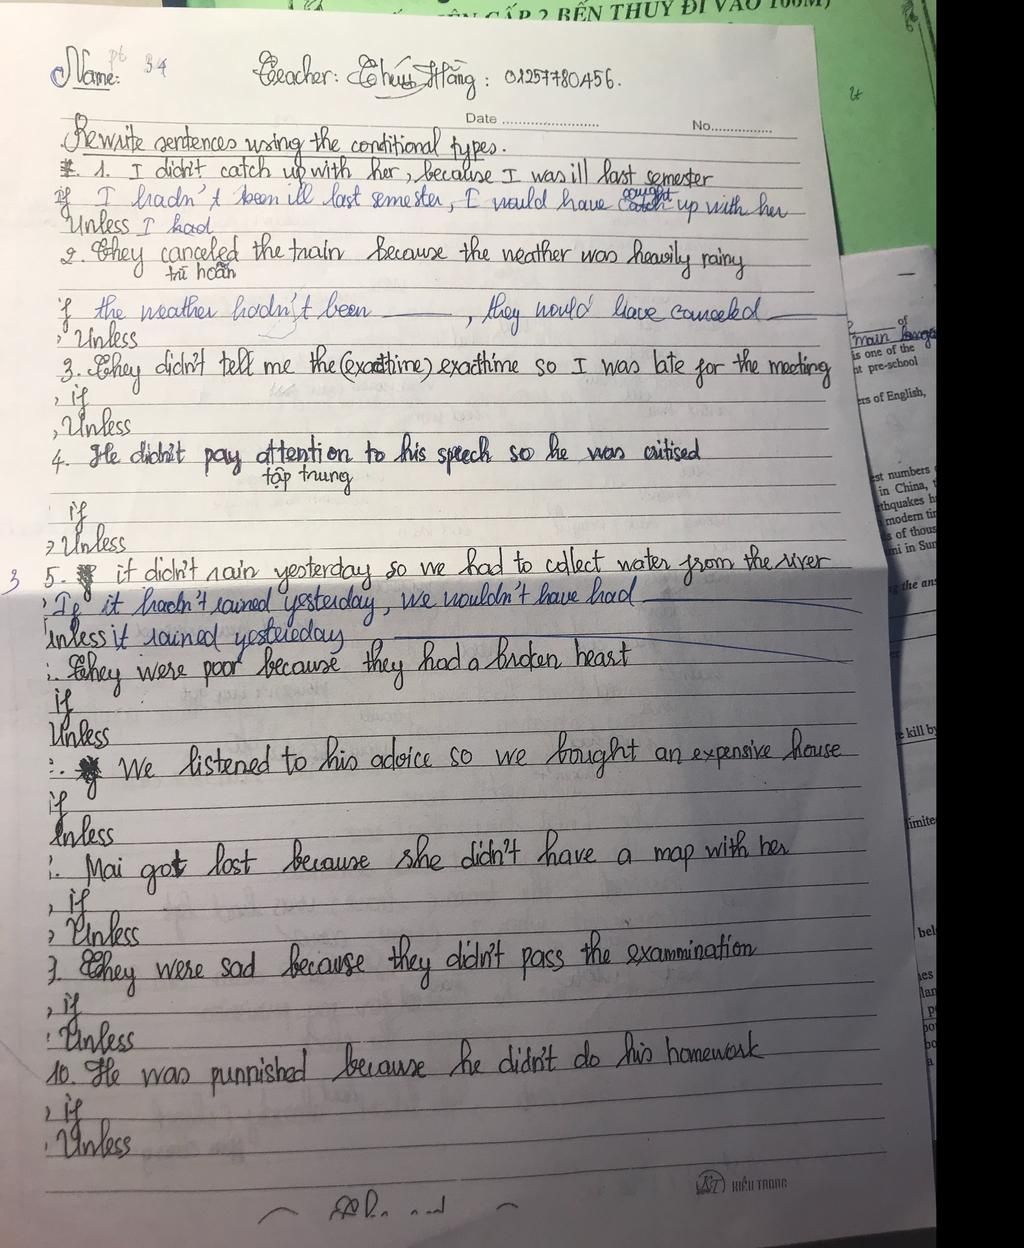 CẤP 2 BẾN THỦY ĐI VÀO 100M)
Name: pt 34 Teacher: Hằng: 01257780456.
Date ........................ No................
Rewrite sentences using the conditional types.
1. I didn't catch up with her, because I was ill last semester
if I hadn't been ill last semester, I would have caught up with her
Unless I had
2. They canceled the train because the weather was heavily rainy
trì hoãn
if the weather hadn't been ______, they would have canceled ______
, Unless
3. They didn't tell me the (exacthime) exacthime so I was late for the meeting
, if
, Unless
4. He didn't pay attention to his speech so he was critised
tập trung
if
, Unless
3 5. it didn't rain yesterday so we had to collect water from the river
, If it hadn't rained yesterday, we wouldn't have had ______
Unless it rained yesterday ______
They were poor because they had a broken heart
if
Unless
We listened to his advice so we bought an expensive house
if
Unless
Mai got lost because she didn't have a map with her
, if
, Unless
They were sad because they didn't pass the exammination
, if
Unless
10. He was punnished because he didn't do his homework
, if
Unless
KT HIẾU TRANG
of
main
is one of the
nt pre-school
ers of English,
est numbers
in China,
thquakes
modern
s of thous
mi in Sun
g the
e kill by
limite